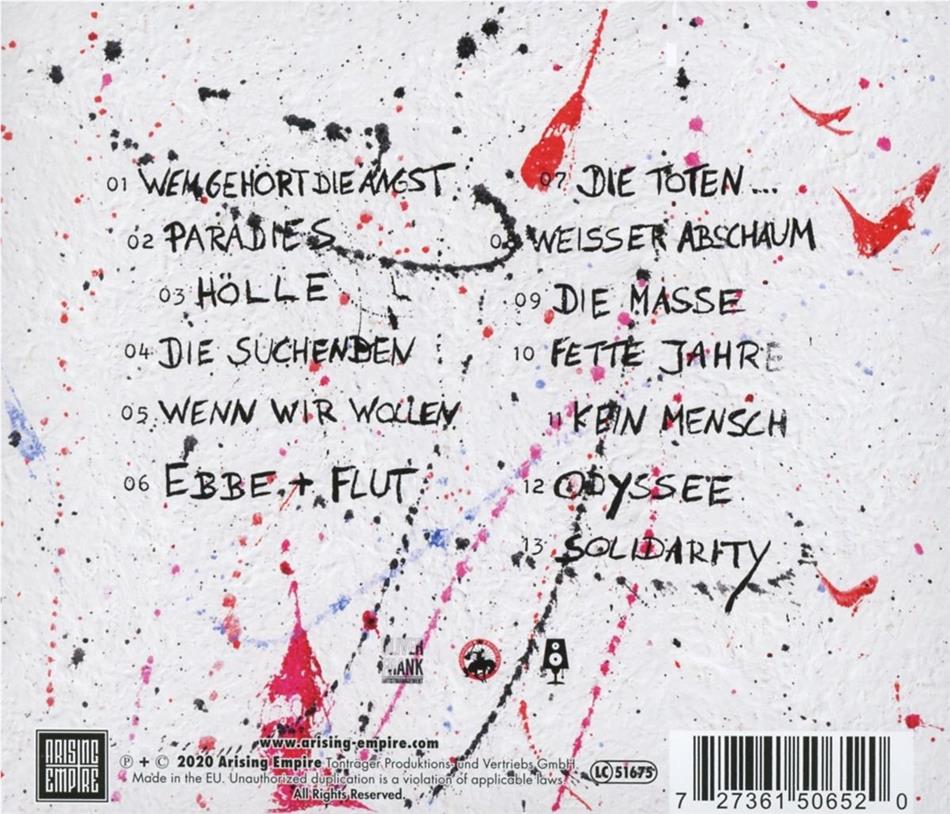 01 WEM GEHÖRT DIE ANGST
02 PARADIES
03 HÖLLE
04 DIE SUCHENDEN
05 WENN WIR WOLLEN
06 EBBE + FLUT
07 DIE TOTEN...
08 WEISSER ABSCHAUM
09 DIE MASSE
10 FETTE JAHRE
11 KEIN MENSCH
12 ODYSSEE
13 SOLIDARITY
ARISING
EMPIRE
www.arising-empire.com
℗ + © 2020 Arising Empire Tonträger Produktions- und Vertriebs GmbH.
Made in the EU. Unauthorized duplication is a violation of applicable laws.
All Rights Reserved.
LC 51675
7 27361 50652 0